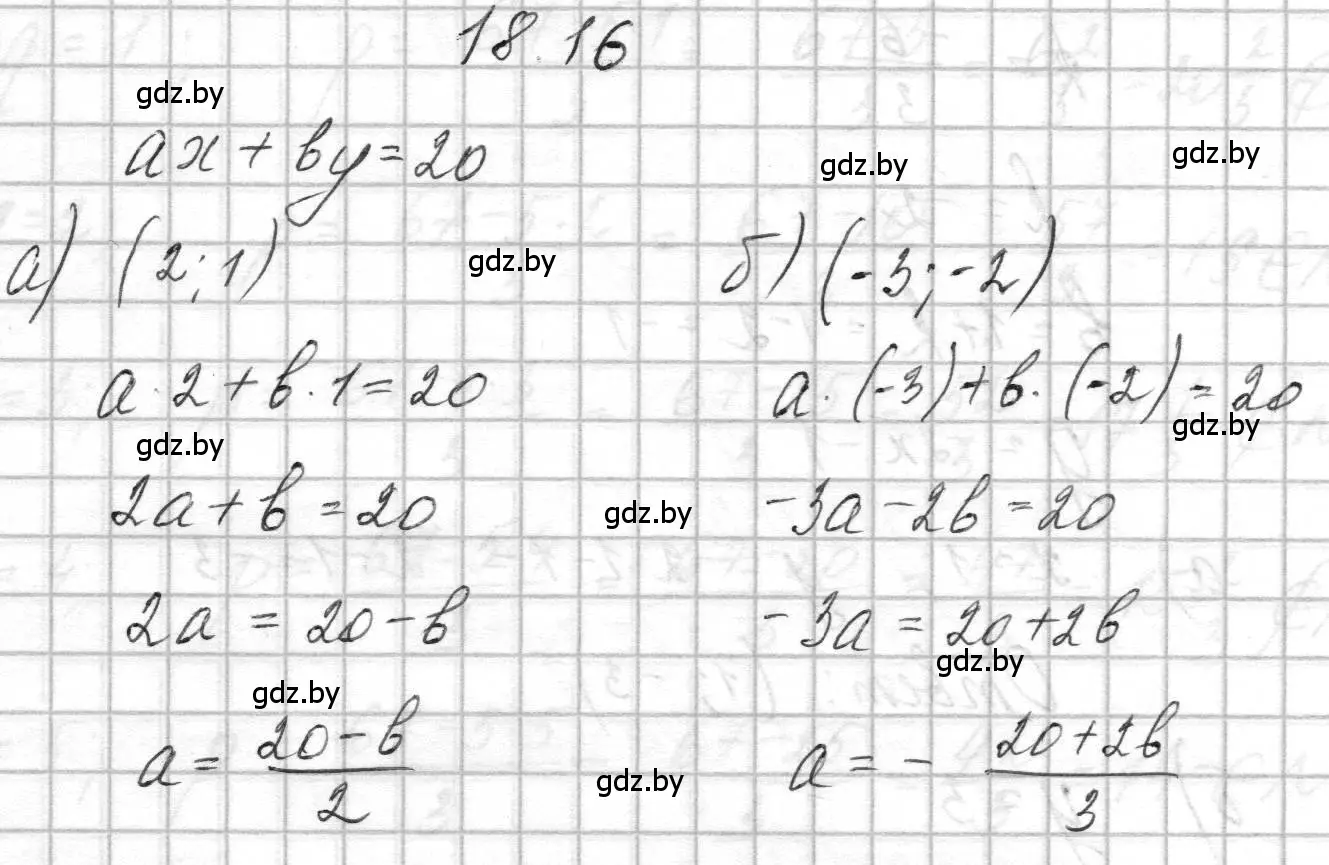 18.16
gdz.by
ax + by = 20
gdz.by
gdz.by
а) (2; 1)
gdz.by
б) (-3; -2)
a · 2 + b · 1 = 20
a · (-3) + b · (-2) = 20
gdz.by
gdz.by
2a + b = 20
gdz.by
-3a - 2b = 20
2a = 20 - b
-3a = 20 + 2b
gdz.by
gdz.by
a = \frac{20 - b}{2}
gdz.by
a = - \frac{20 + 2b}{3}